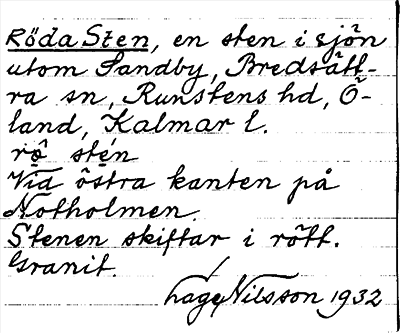 Röda Sten, en sten i sjön
utom Sandby, Bredsätt-
ra sn, Runstens hd, Ö-
land, Kalmar l.
rö stén
Vid östra kanten på
Notholmen.
Stenen skiftar i rött.
Granit.
Hage Nilsson 1932